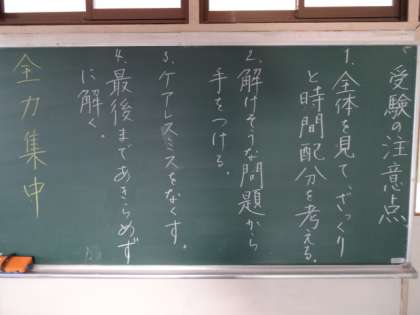 受験の注意点
1. 全体を見て、ざっくり
と時間配分を考える。
2. 解けそうな問題から
手をつける。
3. ケアレスミスをなくす。
4. 最後まであきらめず
に解く。
全力集中